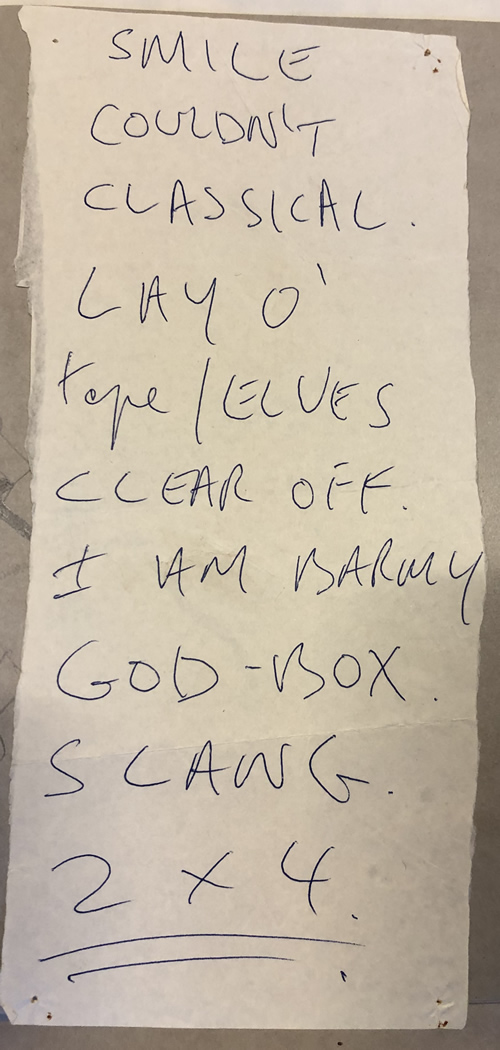 SMILE
COULDN'T
CLASSICAL.
LAY O'
tape/ELVES
CLEAR OFF.
I AM BARMY
GOD-BOX.
SLANG.
2 x 4.